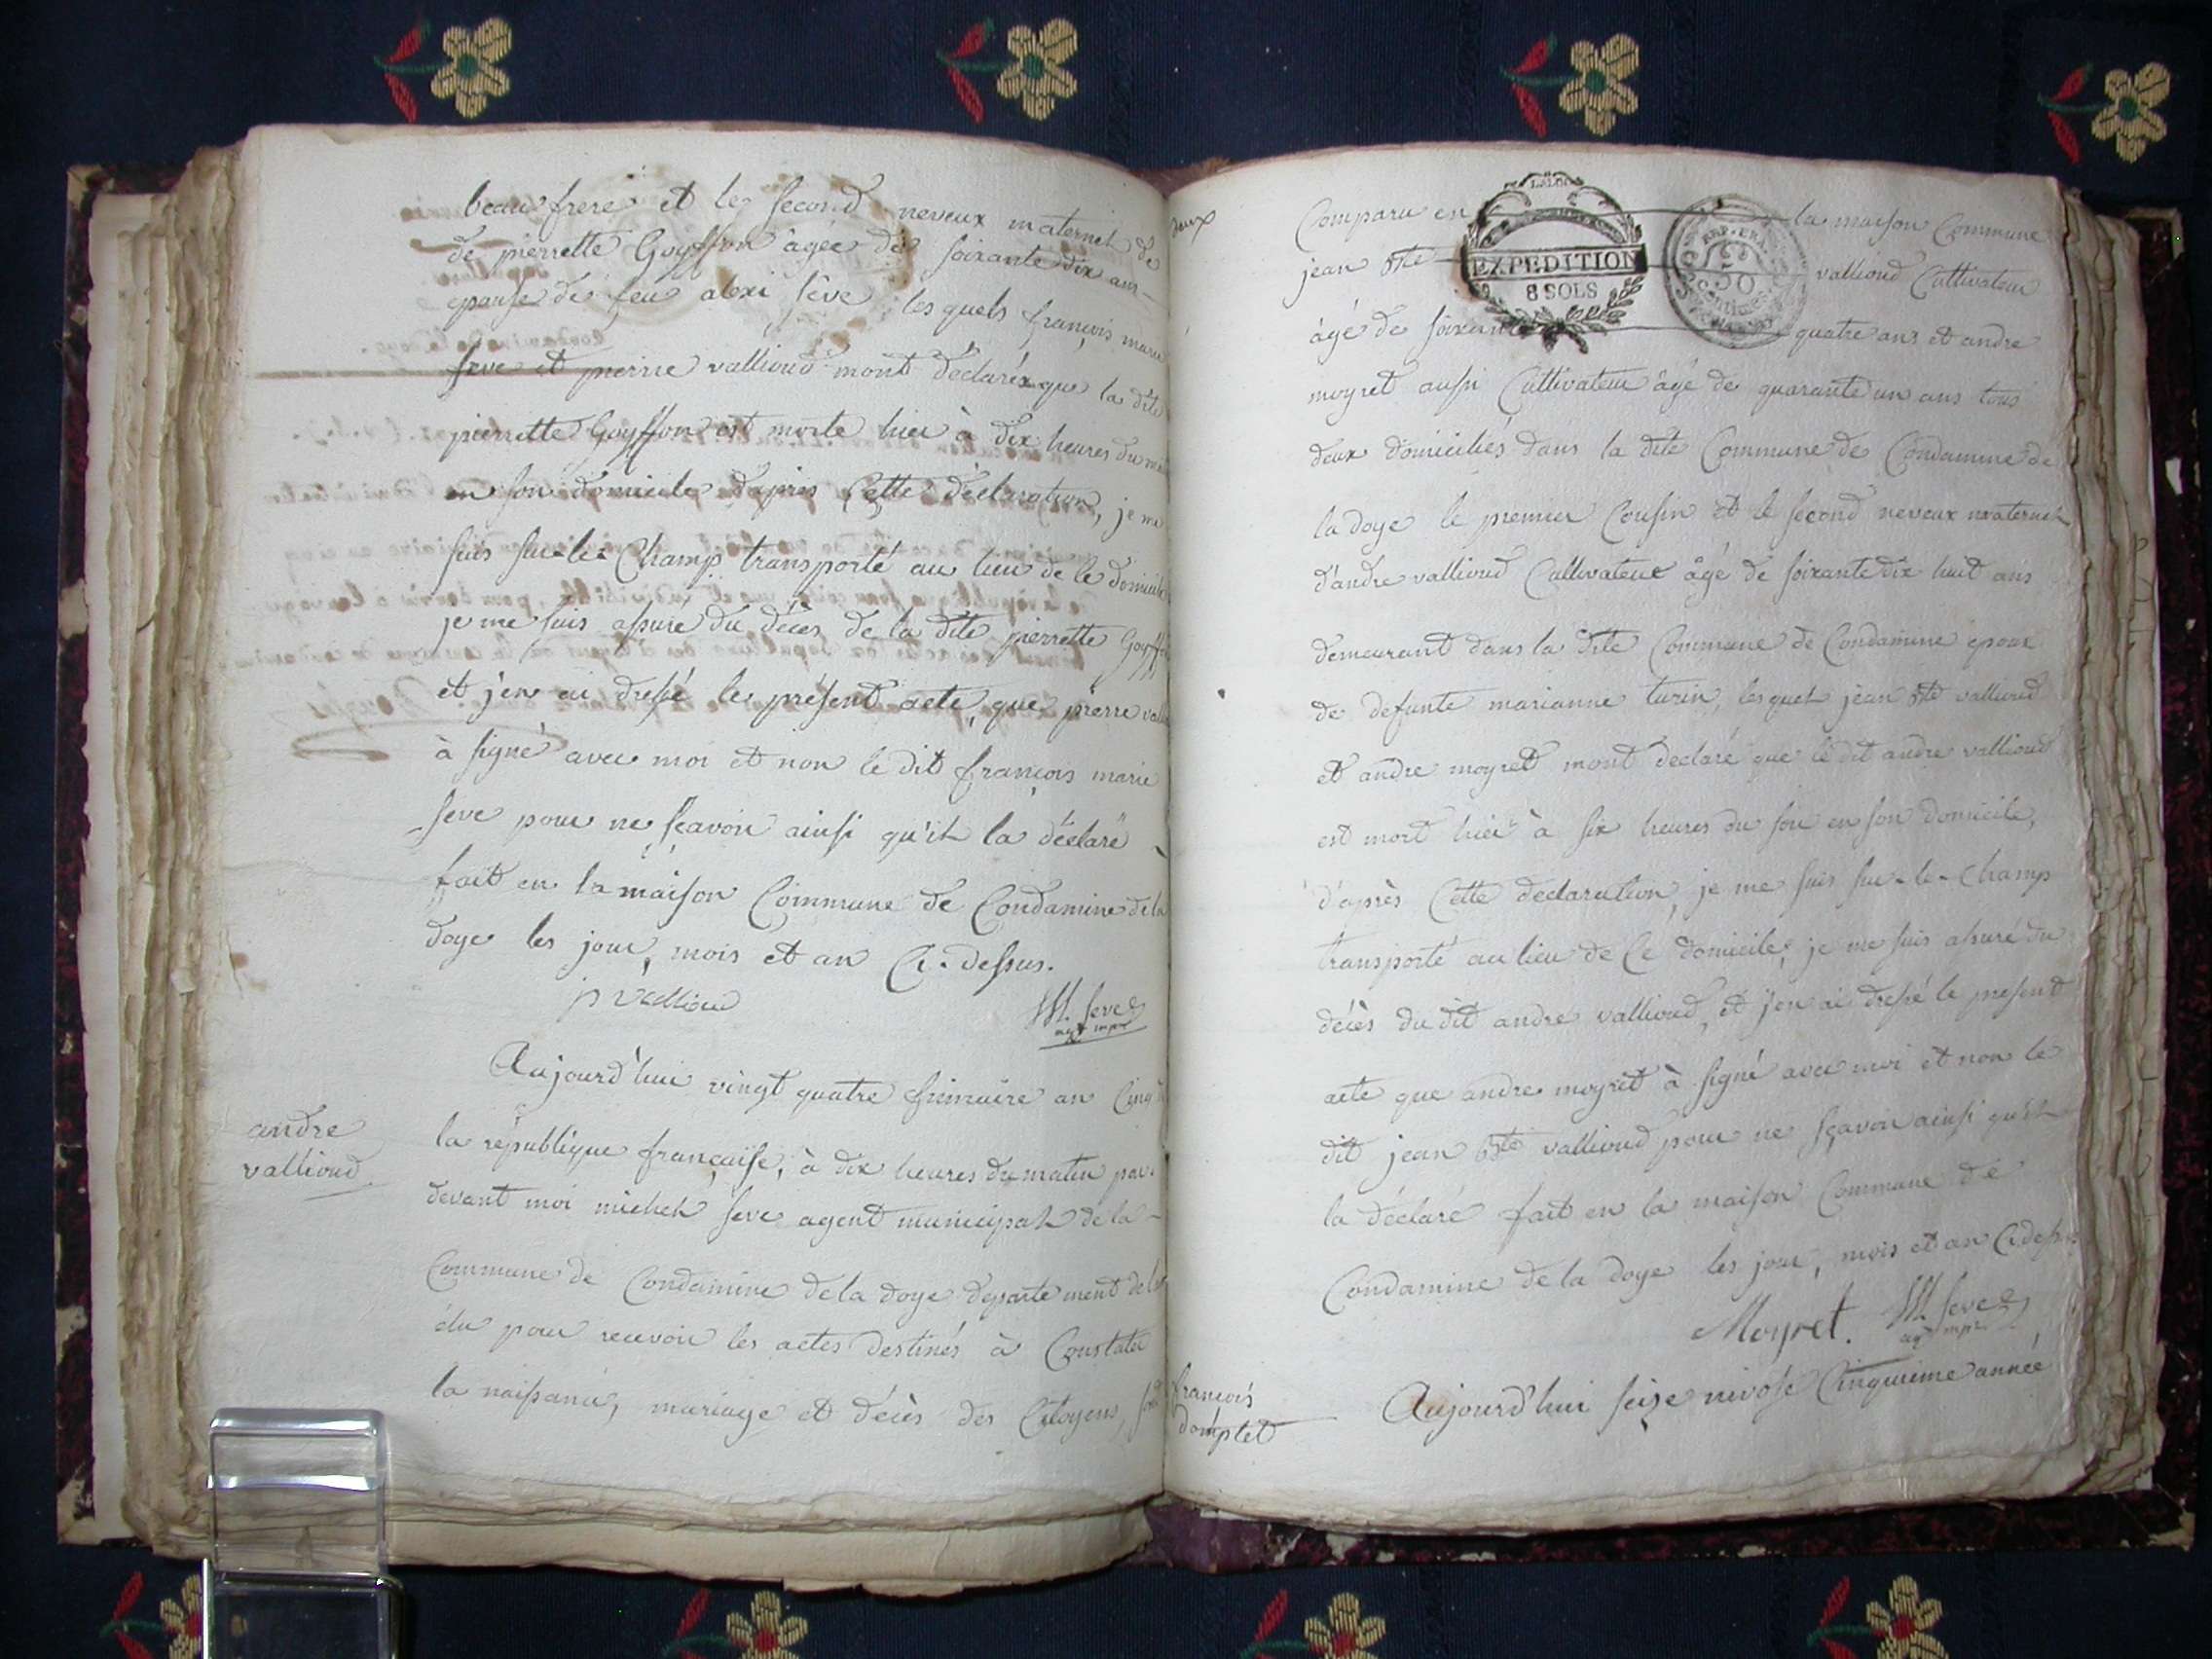 beau frere et le second neveux maternel de
de pierrette Goyffon âgée de soixante dix ans
epouse de feu alexi sêve les quels françois marie
seve et pierre vallioud mont déclaréx que la dite
pierrette Goyffon est morte hier à dix heures du
en son domicile d'apris Cette déclaration, je me
suis sur-le-Champ transporté au lieu de le domicile
je me suis assuré du décès de la dite pierrette Goyffon
et j'en ai dressé le présent acte, que pierre
à signé avec moi et non le dit françois marie
seve pour ne sçavoir ainsi qu'il la déclaré
fait en la maison Commune de Condamine de la
doye les jour, mois et an Ci-dessus.
p vallioud
M. Seve
agt mpl
andre
vallioud
Aujourd'hui vingt quatre frimaire an Cinq
la république française, à dix heures du matin par-
devant moi michel seve agent municipal de la
Commune de Condamine de la doye departement de
élu pour recevoir les actes destinés à Constater
la naissance, mariage et décès des Citoyens,
deux
Comparu en la maison Commune
jean Bte vallioud Cultivateur
LALOI
EXPEDITION
8 SOLS
REP. FRA.
50
Centimes
âgé de soixante quatre ans et andre
moyret aussi Cultivateur âgé de quarante un ans tous
deux domiciliés dans la dite Commune de Condamine de
la doye le premier Cousin et le second neveux maternel
d'andre vallioud Cultivateur âgé de soixante dix huit ans
demeurant dans la dite Commune de Condamine epoux
de defunte marianne turin, les quels jean Bte vallioud
et andre moyret mont declaré que le dit andre vallioud
est mort hier à six heures du soir en son domicile,
d'après Cette declaration, je me suis sur-le-Champ
transporté au lieu de Ce domicile, je me suis assuré du
décès du dit andre vallioud, et j'en ai dressé le present
acte que andre moyret à signé avec moi et non le
dit jean Bte vallioud pour ne sçavoir ainsi qu'il
la déclaré fait en la maison Commune de
Condamine de la doye les jour, mois et an Ci dessus
Moyret. M. Seve
agt mpl
françois
domptet
Aujourd'hui seize nivose Cinquieme année